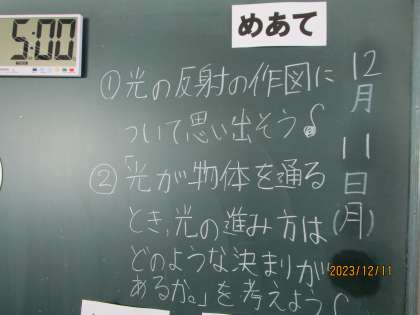 5:00
めあて
12月11日(月)
①光の反射の作図に
ついて思い出そう。
②「光が物体を通る
とき、光の進み方は
どのような決まりが
あるか。」を考えよう。
2023/12/11